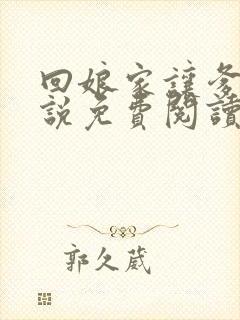 回娘家讓爹
說免費閱讀
郭久葳